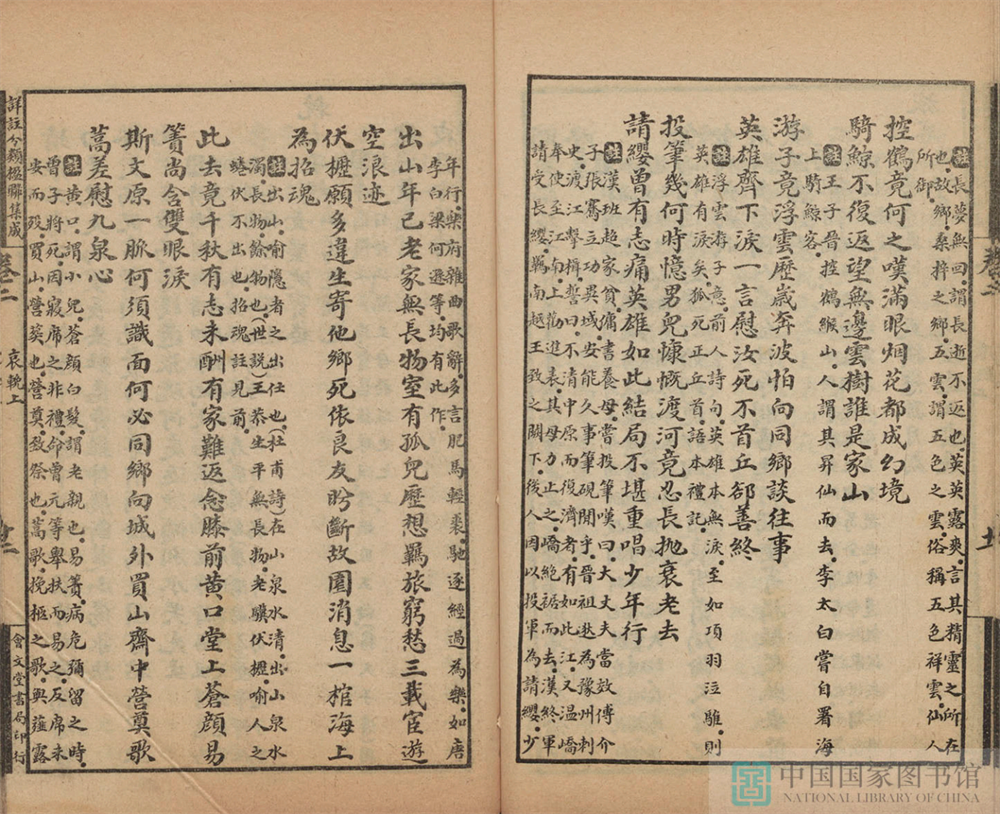 註長夢無回謂長逝不返也英英露爽言其精靈之所在
也故鄉桑梓之鄉五雲謂五色之雲俗稱五色祥雲仙人
所御
控鶴竟何之嘆滿眼烟花都成幻境
騎鯨不復返望無邊雲樹誰是家山
註王子晉控鶴緱山人謂其昇仙而去李太白嘗自署海
上騎鯨客
游子竟浮雲歷歲奔波怕向同鄉談往事
英雄齊下淚一言慰汝死不首丘卻善終
註浮雲游子意前人詩句英雄本無淚至如項羽泣騅則
英雄有淚矣狐死正丘首語本禮記
投筆幾何時憶男兒慷慨渡河竟忍長拋衰老去
請纓曾有志痛英雄如此結局不堪重唱少年行
註漢班超家貧傭書養母嘗投筆嘆曰大丈夫當效傅介
子張騫立功異域安能久事筆硯聞乎晉祖逖為豫州刺
史渡江擊楫誓曰不清中原而復濟者有如此江又温嶠
奉使至江南上勸進表其母力止之嶠絕裾而去漢終軍
請受長纓羈南越王致之闕下後人因以投軍為請纓少
年行樂府雜曲歌辭多言肥馬輕裘馳逐經過為樂如唐
李白梁何遜等均有此作
出山年已老家無長物室有孤兒歷想羈旅窮愁三載宦遊
空浪迹
伏櫪願多違生寄他鄉死依良友盻斷故園消息一棺海上
為招魂
註出山喻隱者之出仕也(杜甫詩)在山泉水清出山泉水
濁長物餘物也(世說)王恭生平無長物老驥伏櫪喻人之
蜷伏不出也招魂註見前
此去竟千秋有志未酬有家難返念膝前黃口堂上蒼顏易
簀尚含雙眼淚
斯文原一脈何須識面何必同鄉向城外買山齋中營奠歌
蒿差慰九泉心
註黃口謂小兒蒼顏白髮謂老親也易簀病危彌留之時
曾子將死因寢席之非禮命曾元等舉扶而易之反席未
安而歿買山營葬也營奠致祭也蒿歌挽柩之歌與薤露
詳註分類楹聯集成
卷二
哀輓上
會文堂書局印行
中国国家图书馆
NATIONAL LIBRARY OF CHINA